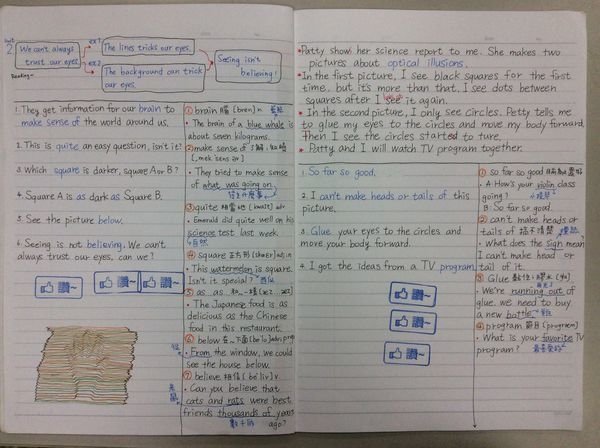 Unit
2
We can't always
trust our eyes.
Reading~
ex1
The lines tricks our eyes.
ex2
The background can trick
our eyes.
Seeing isn't
believing!
1. They get information for our brain to
make sense of the world around us.
2. This is quite an easy question, isn't it?
3. Which square is darker, square A or B?
4. Square A is as dark as Square B.
5. See the picture below.
6. Seeing is not believing. We can't
always trust our eyes, can we?
讚~
讚~
讚~
① brain 腦 [bren] n
• The brain of a blue whale is
about seven kilograms.
② make sense of 了解
• They tried to make sense
of what was going on.
③ quite 相當地 [kwait] adv
• Emerald did quite well on his
science test last week.
④ square 正方形
• This watermelon is square.
Isn't it special?
⑤ as...as...
• The Japanese food is as
delicious as the Chinese
food in this restaurant.
⑥ below 在…下面
• From the window, we could
see the house below.
⑦ believe 相信
• Can you believe that
cats and rats were best
friends thousands of years
ago?
* Patty show her science report to me. She makes two
pictures about optical illusions.
* In the first picture, I see black squares for the first
time, but it's more than that. I see dots between
squares after I see it again.
* In the second picture, I only see circles. Petty tells me
to glue my eyes to the circles and move my body forward.
Then I see the circles started to ture.
* Patty and I will watch TV program together.
1. So far so good.
2. I can't make heads or tails of this
picture.
3. Glue your eyes to the circles and
move your body forward.
4. I got the ideas from a TV program.
讚~
讚~
讚~
① so far so good
• A: How's your violin class
going? 小提琴
B: So far so good.
② can't make heads or
tails of 搞不清楚
• What does the sign mean
I can't make head or
tail of it.
③ Glue 黏住;膠水
• We're running out of
glue. we need to buy
a new bottle.
④ program 節目
• What is your favorite TV
program?